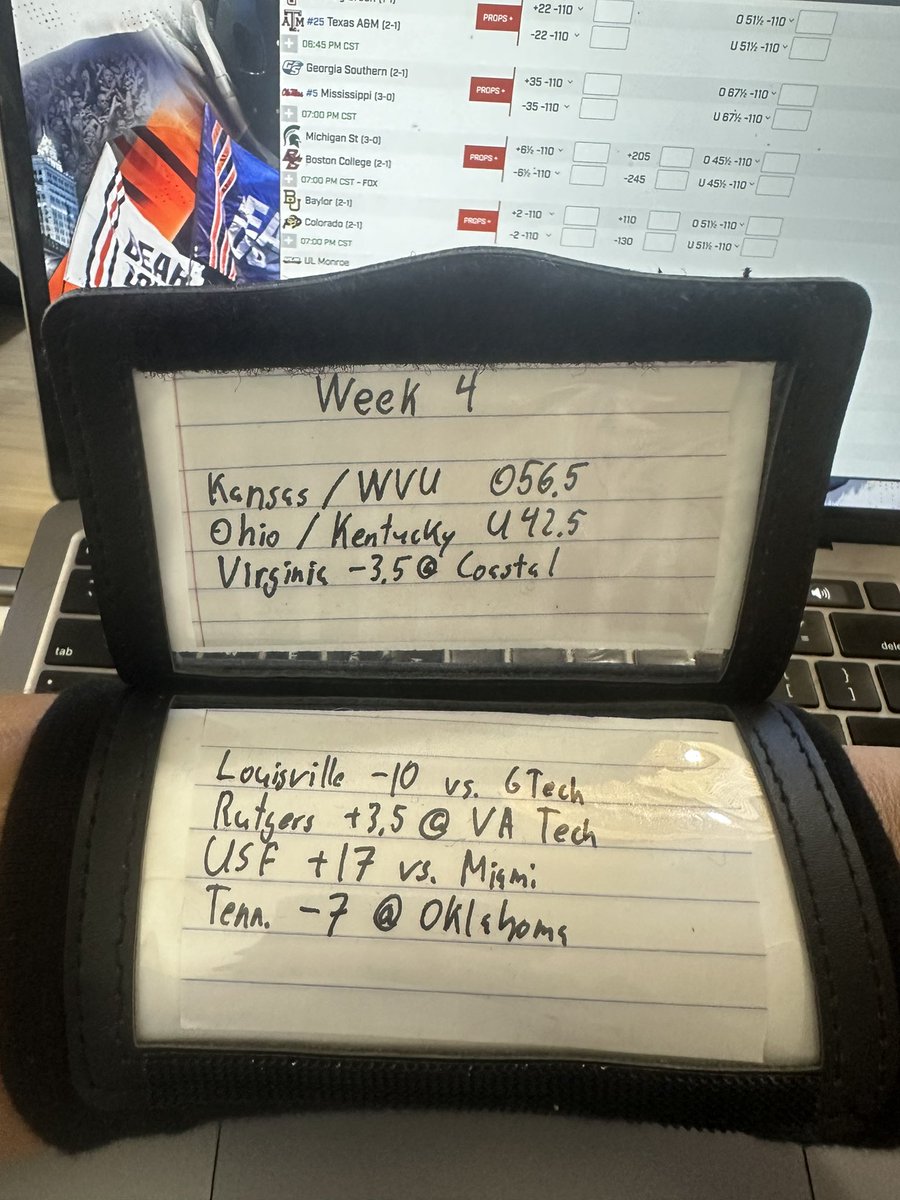 #25 Texas A&M (2-1)
PROPS +
+22 -110
-22 -110
O 51½ -110
U 51½ -110
06:45 PM CST
Georgia Southern (2-1)
#5 Mississippi (3-0)
07:00 PM CST
PROPS +
+35 -110
-35 -110
O 67½ -110
U 67½ -110
Michigan St (3-0)
Boston College (2-1)
07:00 PM CST - FOX
PROPS +
+6½ -110
-6½ -110
+205
-245
O 45½ -110
U 45½ -110
Baylor (2-1)
Colorado (2-1)
07:00 PM CST
PROPS +
+2 -110
-2 -110
+110
-130
O 51½ -110
U 51½ -110
UL Monroe
Week 4
Kansas / WVU O56.5
Ohio / Kentucky U 42.5
Virginia -3.5 @ Coastal
tab
Louisville -10 vs. GTech
Rutgers +3.5 @ VA Tech
USF +17 vs. Miami
Tenn. -7 @ Oklahoma